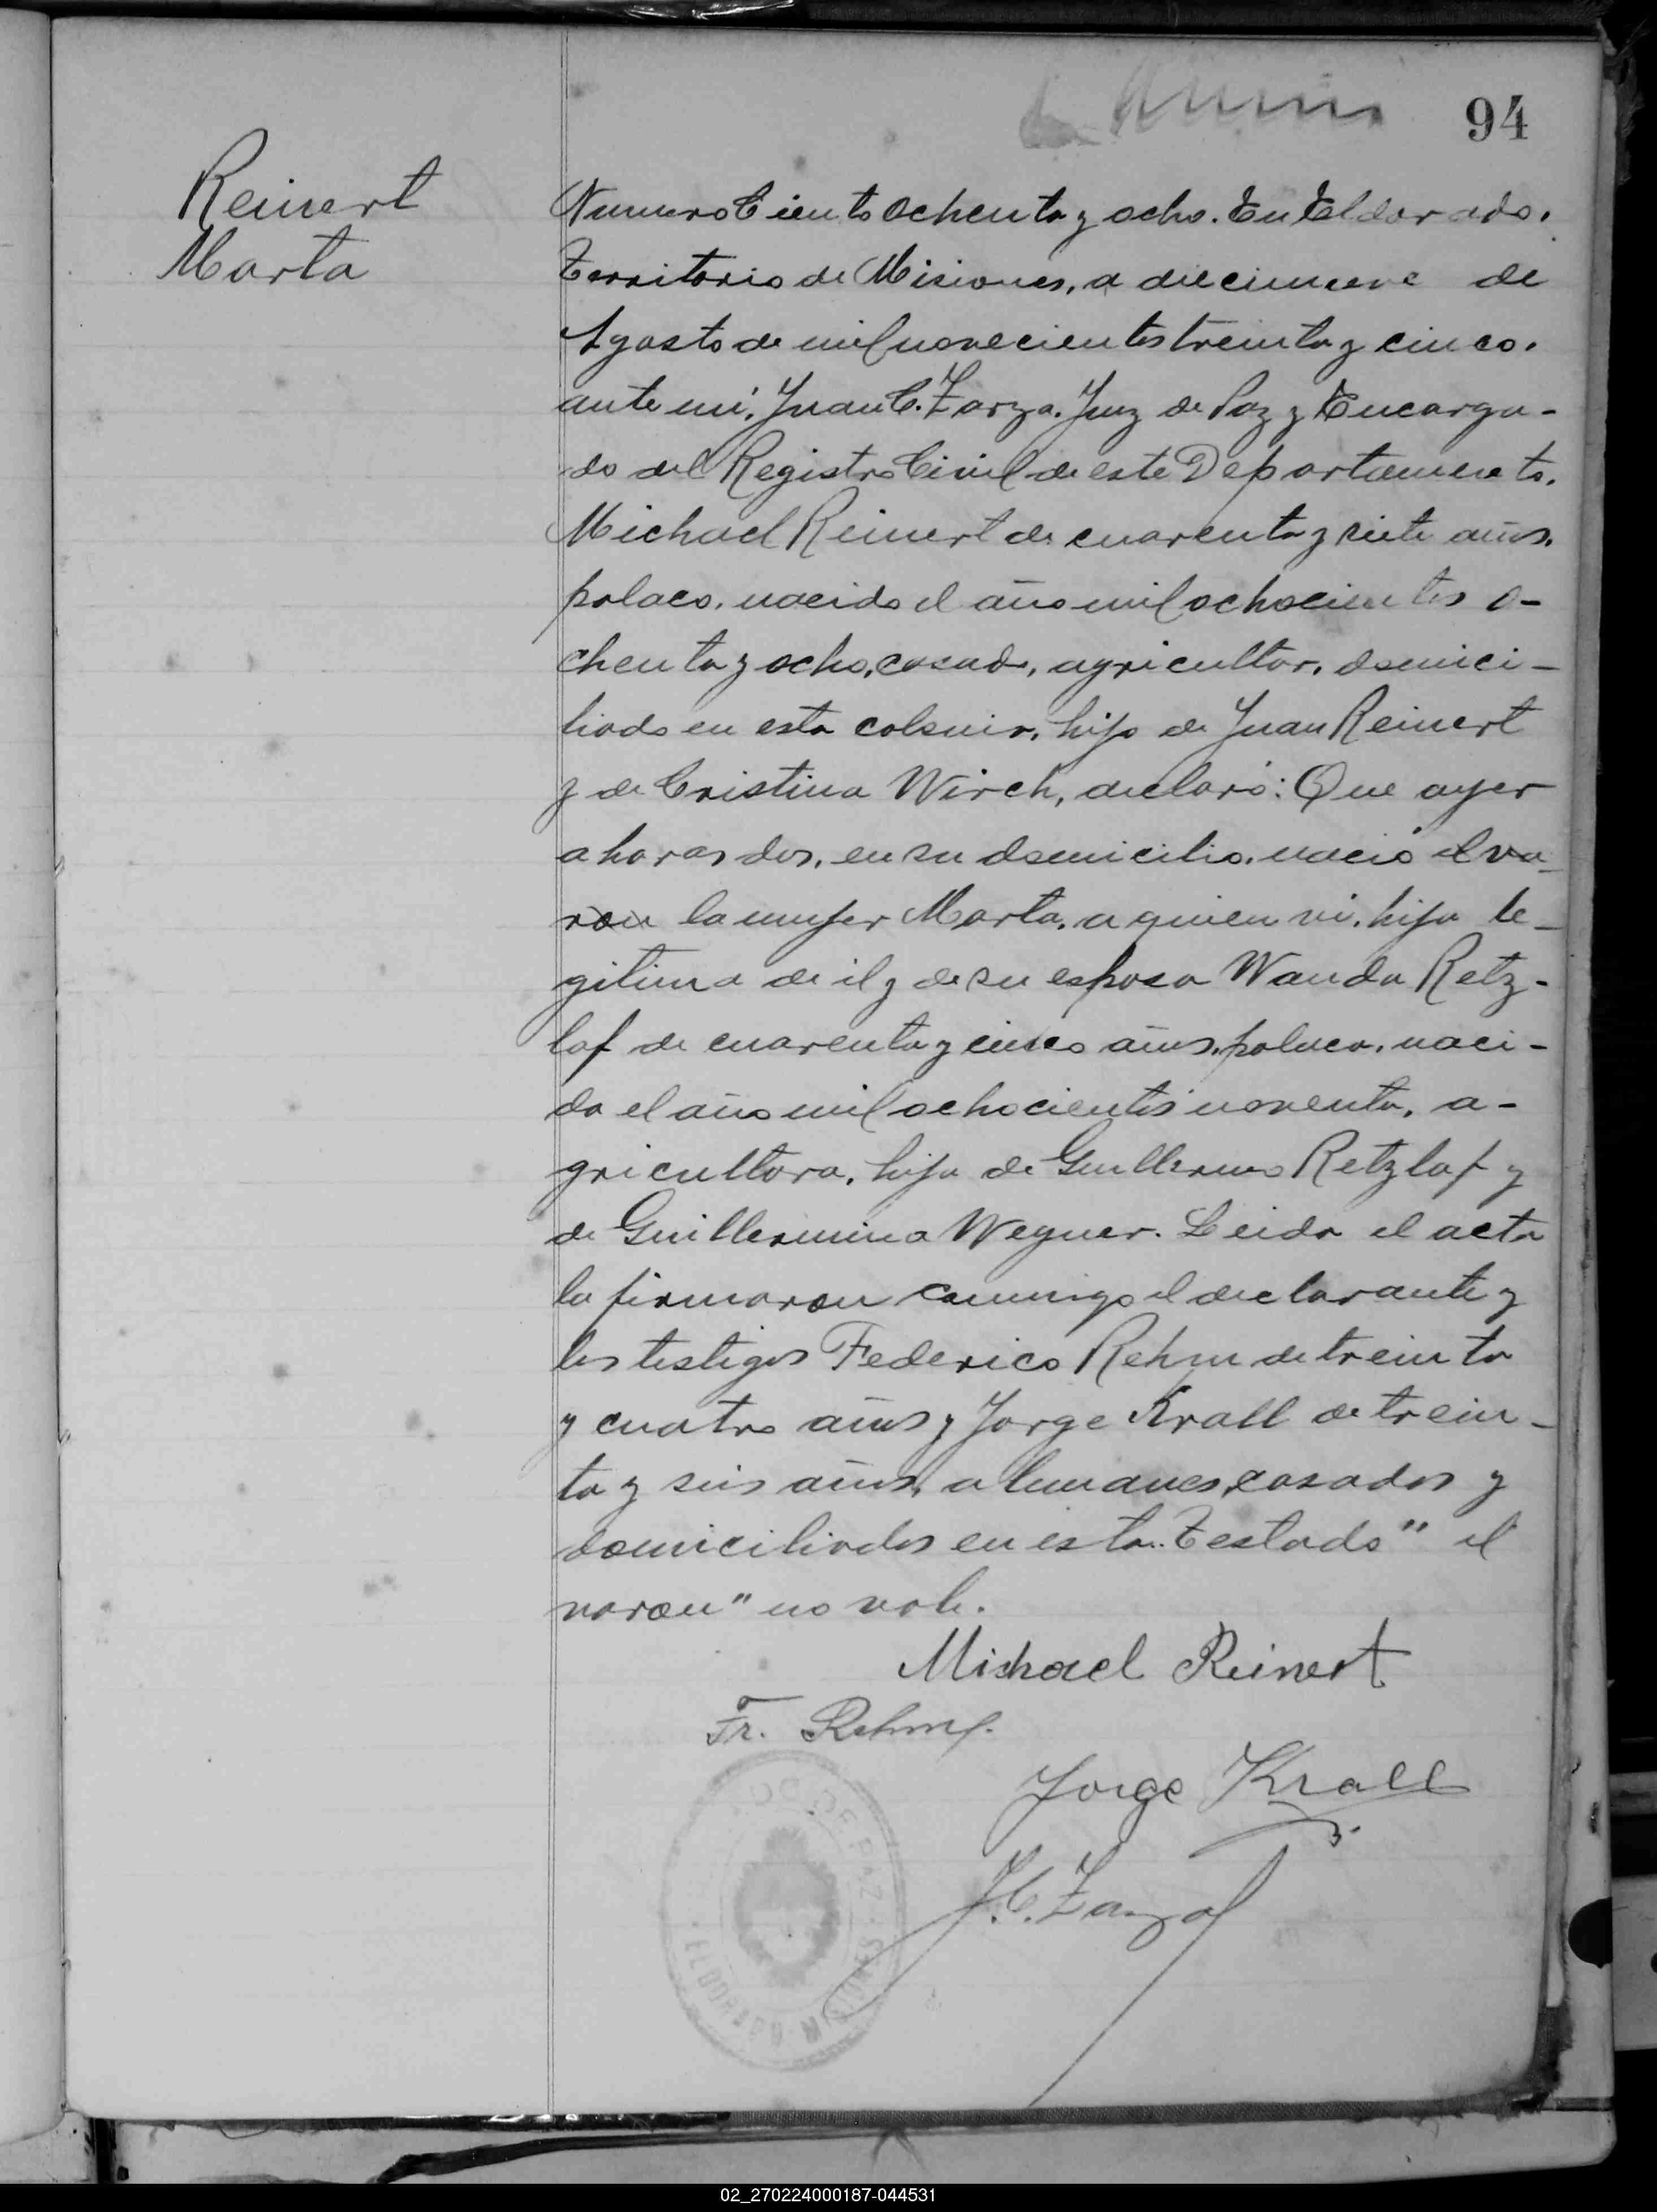 94
Reinert
Marta
Numero Ciento Ochenta y ocho. En Eldorado.
Territorio de Misiones, a diecinueve de
Agosto de mil novecientos treinta y cinco.
ante mi, Juan C. Zarza. Juez de Paz y Encarga-
do del Registro Civil de este Departamento.
Michael Reinert de cuarenta y siete años.
polaco. nacido el año mil ochocientos o-
chenta y ocho, casado, agricultor, domici-
liado en esta colonia, hijo de Juan Reinert
y de Cristina Wirch, declaró: Que ayer
a horas dos, en su domicilio, nació el va-
ron la mujer Marta, a quien vi, hija le-
gitima de él y de su esposa Wanda Retz-
laf de cuarenta y cinco años, polaca, naci-
da el año mil ochocientos noventa, a-
gricultora, hija de Guillermo Retzlaf y
de Guillermina Wegner. Leida el acta
la firmaron conmigo el declarante y
los testigos Federico Rehm de treinta
y cuatro años y Jorge Krall de trein-
ta y seis años, alemanes, casados y
domiciliados en esta. Testado " el
varon" no vale.
Michael Reinert
Fr. Rehm.
Jorge Krall
J.C. Zarza
DE PAZ
ELDORADO